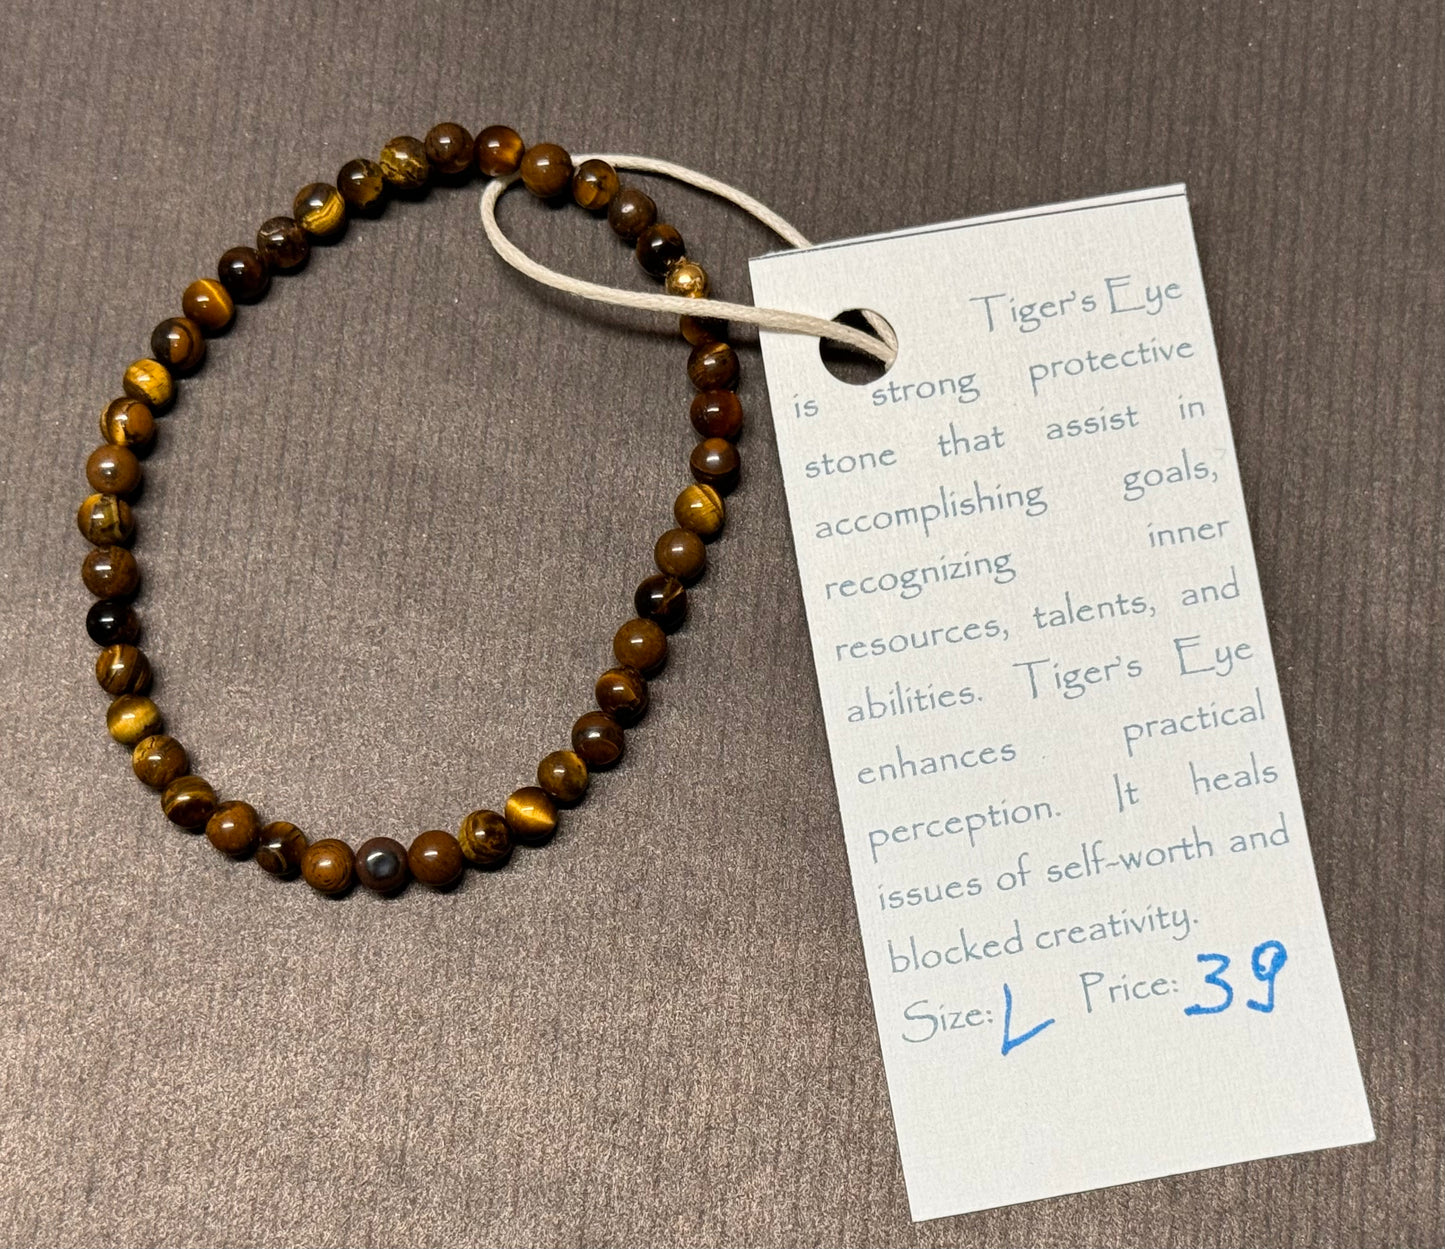 Tiger's Eye
is strong protective
stone that assist in
accomplishing goals,
recognizing inner
resources, talents, and
abilities. Tiger's Eye
enhances practical
perception. It heals
issues of self-worth and
blocked creativity.
Size: L Price: 39